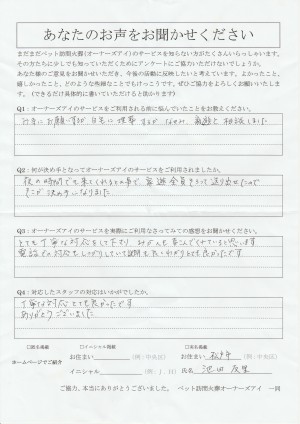 あなたのお声をお聞かせください
まだまだペット訪問火葬(オーナーズアイ)のサービスを知らない方がたくさんいらっしゃいます。
その方たちに少しでも知っていただくためにアンケートにご協力いただけないでしょうか。
あなた様のご意見をお聞かせいただき、今後の活動に反映したいと考えています。よかったこと、
嬉しかったこと、どのような些細なことでもけっこうです。ぜひご協力をよろしくお願いいたしま
す。(できるだけ具体的に書いていただけると助かります)
Q1:オーナーズアイのサービスをご利用される前に悩んでいたことをお教えください。
家族と相談しました
Q2:何が決め手となってオーナーズアイのサービスをご利用されましたか。
夜の時間でも来てくれるとの事で、家族全員そろって送り出せたので
そこが決め手になりました
Q3:オーナーズアイのサービスを実際にご利用されてみての感想をお聞かせください。
とても丁寧な対応をして下さり
電話での対応もしっかりしていて説明も良いわかりとても良かったです
Q4:対応したスタッフの対応はいかがでしたか。
丁寧な対応とても良かったです
ありがとうございました
□匿名掲載 □イニシャル掲載 □実名掲載
ホームページでご紹介 お住まい (例:中央区) お住まい 松戸市 (例:中央区)
イニシャル (例:J.H) 氏名 池田
ご協力、本当にありがとうございました。 ペット訪問火葬オーナーズアイ 一同